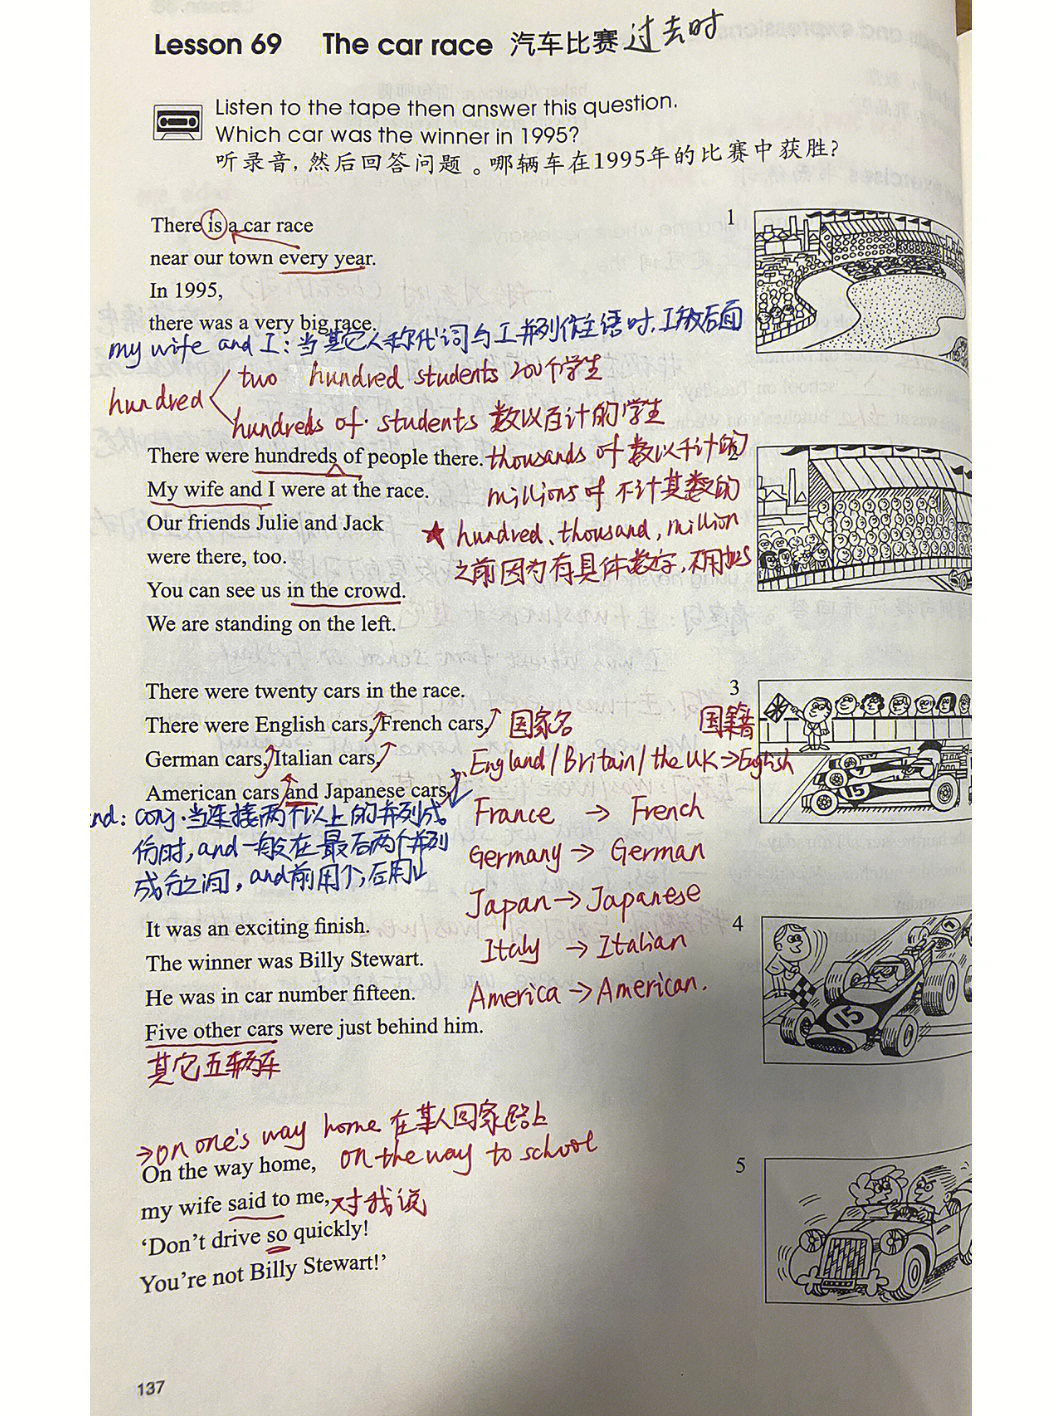 Lesson 69 The car race 汽车比赛 过去时
Listen to the tape then answer this question.
Which car was the winner in 1995?
听录音, 然后回答问题。哪辆车在1995年的比赛中获胜?
There is a car race
near our town every year.
In 1995,
there was a very big race.
my wife and I: 当其它人称代词与I并列作主语时, I放后面
two hundred students 200个学生
hundred
hundreds of students 数以百计的学生
There were hundreds of people there. thousands of 数以千计的
My wife and I were at the race. millions of 不计其数的
Our friends Julie and Jack
★ hundred、thousand, million
were there, too.
之前因为有具体数字, 不用加s
You can see us in the crowd.
We are standing on the left.
There were twenty cars in the race.
There were English cars, French cars, 国家名 国籍
German cars, Italian cars,
England/Britain/the UK→English
American cars and Japanese cars.
nd: conj. 当连接两个以上的并列成
份时, and一般在最后两个并列
成分之间, and前用个, 后用
France → French
Germany → German
Japan → Japanese
Italy → Italian
America → American.
It was an exciting finish.
The winner was Billy Stewart.
He was in car number fifteen.
Five other cars were just behind him.
其它五辆车
→on one's way home 在某人回家路上
On the way home, on the way to school
my wife said to me, 对我说
‘Don't drive so quickly!
You're not Billy Stewart!’
1
2
3
4
5
15
15
137